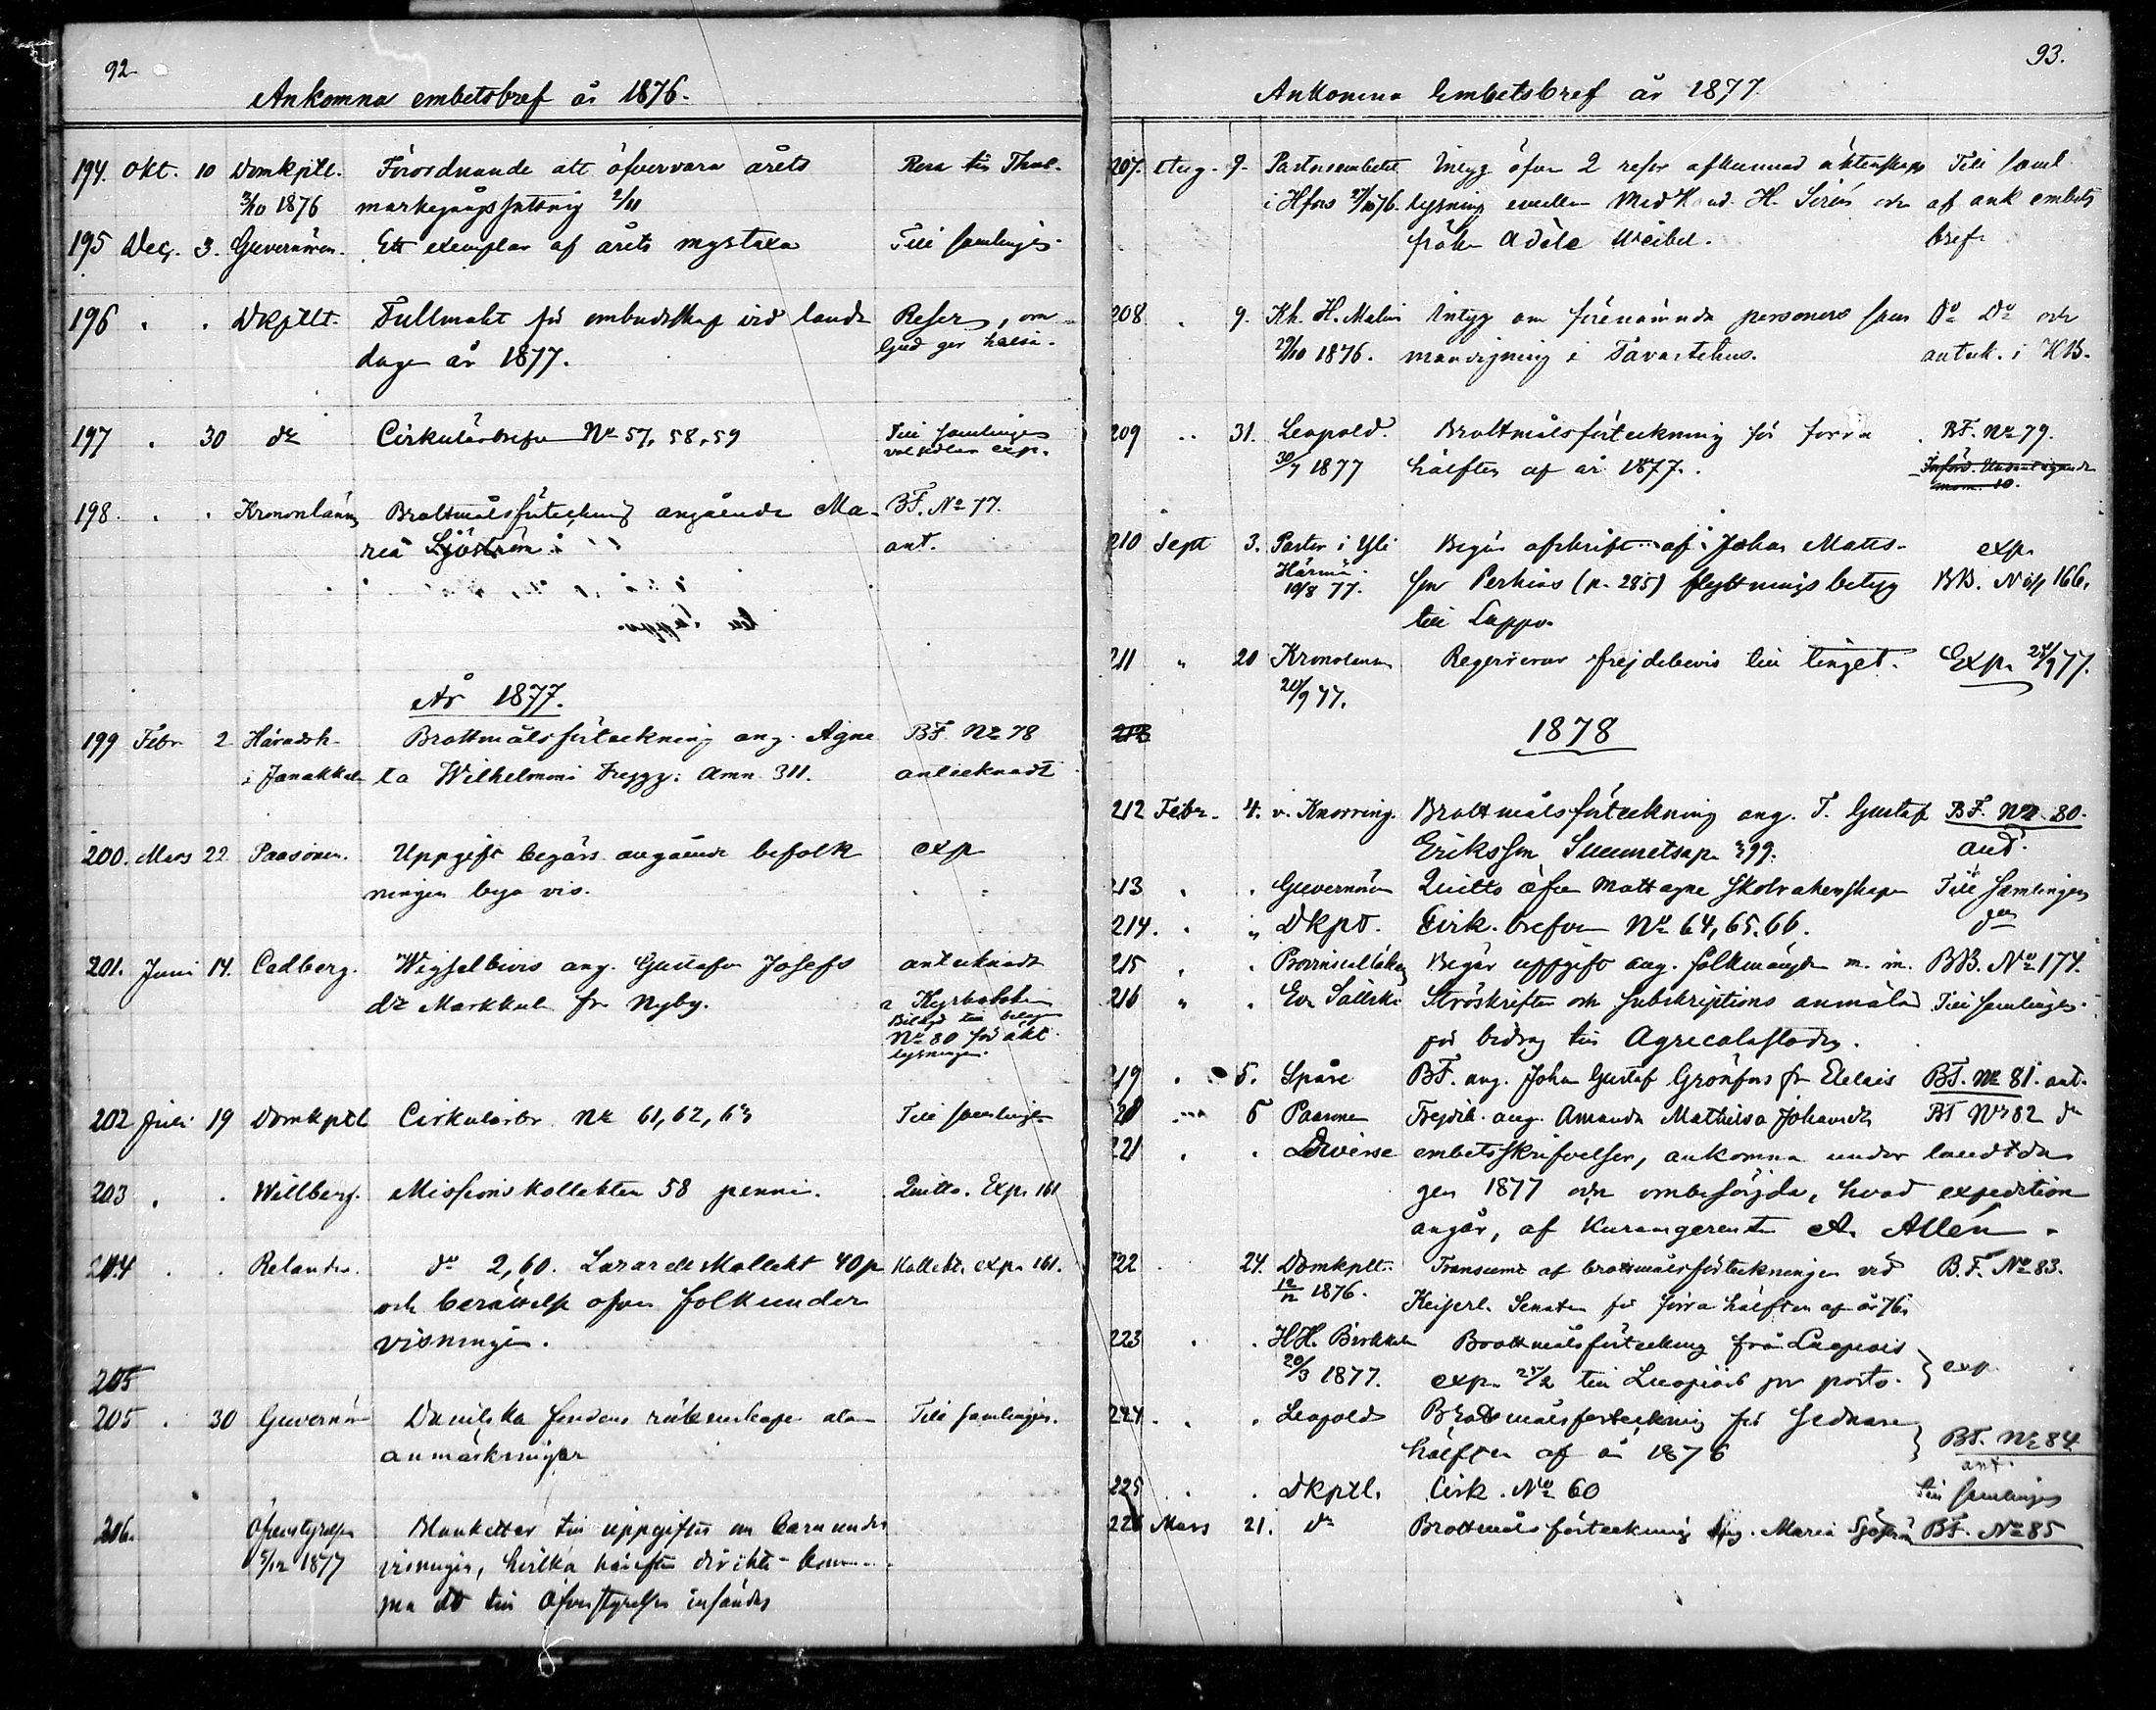 92
Ankomna embetsbref år 1876.
194. Okt. 10 Domkptl. Förordnande att öfvervara årets
3/10 1876 markegångssättning 2/11
195 Dec. 3. Guvernören. Ett exemplar af årets Till samlingen.
196 . . Dkptlt. Fullmakt för ombudskap vid landt
dagen år 1877.
197 . 30 do Cirkulärbrefven No 57, 58, 59 Till samlingen
exp.
198. . . Kronolänsm Brottmålsförteckning angående Ma- BF. No 77.
ria Sjöström ant.
År 1877.
199 Febr. 2 Häradsh. Brottmålsförteckning ang. Agne BF. No 78
i Janakkala ta Wilhelmina 311. antecknadt
200. Mars 22 Paasonen. Uppgift begärs angående befolk exp
ningen
201. Juni 14. Cedberg. Wigselbevis ang. Gustafva Josefs antecknadt
dr Markkula fr Nyby.
No 80 för äkt
lysningen.
202 Juli 19 Domkptl Cirkulärbr No 61, 62, 63 Till samlingen
203 . . Willberg. Missionskollekten 58 penni. Quitto. Exp. 161
204 . . Relander. do 2,60. Lazaretts kollekt 40 p Kollekt. exp. 161.
och berättelse öfver folkunder
visningen.
205
205 . 30 Guvernör Danilska fondens räkenskaper utan Till samlingen.
anmärkningar
206. Öfverstyrelsen Blanketter till uppgifter om barnunder
5/12 1877 visningen, hvilka härefter direkte
till Öfverstyrelsen insändes
93.
Ankomna Embetsbref år 1877
207. Aug. 9. Pastorsembetet Intyg öfver 2 resor afkunnad äktenskaps Till saml
i Hfors 27/10 76. lysning emellan Med Kand. H. Sirén och af ank embets
fröken Adèle Weibel. bref.
208 . 9. Kh. H. Malin Intyg om förenämnda personers sam Do Do och
27/10 1876. manvigning i Tavastehus. anteck. i KB.
209 .. 31. Leopold. Brottmålsförteckning för förra BF. No 79.
30/7 1877 hälften af år 1877.
210 Sept 3. Pastor i Yli Begär afskrift af Johan Matts- exp.
Härmä son Perkiös (p. 285) flyttningsbetyg BB. No 166.
10/8 77. till Lappo.
211 " 20 Kronolänsm Reqvirerar frejdebevis till tinget. Exp. 24/9 77.
20/9 77.
1878
212 Febr. 4. v. Knorring. Brottmålsförteckning ang. T. Gustaf BF. No 80.
Eriksson, 299. ant.
213 . . Guvernören Quitto öfver mottagne skolräkenskaper Till samlingen
214. . " Dkptl. Cirk. brefven No 64, 65. 66. do
215 " . Provincialläkaren Begär uppgift ang. folkmängden m. m. BB. No 174.
216 " . Ev. Sällsk. Ströskrifter och subskriptions anmälan Till samlingen.
för bidrag till Agricolastoden.
219 . . 5. Spåre BF. ang. Johan Gustaf Grönfors fr BF. No 81. ant.
20 6 Paasonen Frejdeb. ang. Amanda Mathilda Johansdr BF No 82 do
221 . . Diverse embetsskrifvelser, ankomna under landtda
gen 1877 och ombesörjda, hvad expedition
angår, af kuramgerenten A. Allén.
222 24. Domkptl. Transumt af brottmålsförteckningen vid B.F. No 83.
12/12 1876. Keiserl. Senaten för förra hälften af år 76.
223 . . HH. Brottmålsförteckning från
20/3 1877. exp. 25/2 till per posto. exp.
224. . . Leopold Brottmålsförteckning för sednare
hälften af år 1876 BF. No 84
ant.
225 . . Dkptl. Cirk. No 60 till samlingen
226 Mars 21. do Brottmålsförteckning ang. Maria Sjöström BF. No 85